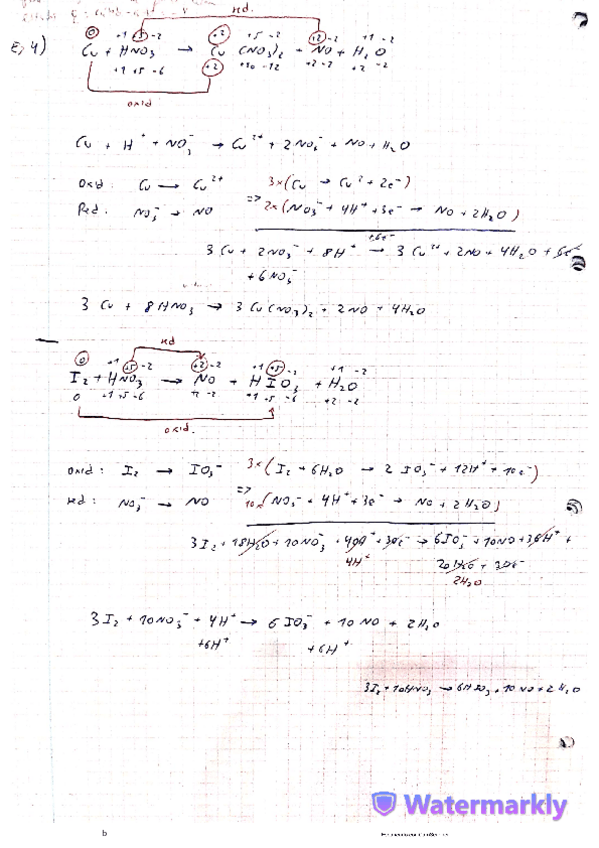 red.
0 +1 +5 -2 +2 +5 -2 +2 -2 +1 -2
E, 4) Cu + HNO₃ → Cu (NO₃)₂ + NO + H₂O
+1 +5 -6 +2 +10 -12 +2 -2 +2 -2
oxid
Cu + H⁺ + NO₃⁻ → Cu²⁺ + 2NO₃⁻ + NO + H₂O
Oxid: Cu → Cu²⁺ 3x (Cu → Cu²⁺ + 2e⁻)
Red: NO₃⁻ → NO => 2x (NO₃⁻ + 4H⁺ + 3e⁻ → NO + 2H₂O)
3 Cu + 2NO₃⁻ + 8H⁺ → 3 Cu²⁺ + 2NO + 4H₂O + 6e⁻
+ 6NO₃⁻
3 Cu + 8HNO₃ → 3 Cu(NO₃)₂ + 2NO + 4H₂O
red
0 +1 +5 -2 +2 -2 +1 +5 -2 +1 -2
I₂ + HNO₃ → NO + HIO₃ + H₂O
0 +1 +5 -6 +2 -2 +1 +5 -6 +2 -2
oxid.
oxid: I₂ → IO₃⁻ 3x (I₂ + 6H₂O → 2 IO₃⁻ + 12H⁺ + 10e⁻)
red: NO₃⁻ → NO => 10x (NO₃⁻ + 4H⁺ + 3e⁻ → NO + 2H₂O)
3I₂ + 18H₂O + 10NO₃⁻ + 40H⁺ + 30e⁻ → 6IO₃⁻ + 10NO + 36H⁺ +
4H⁺ 20H₂O + 30e⁻
2H₂O
3I₂ + 10NO₃⁻ + 4H⁺ → 6IO₃⁻ + 10NO + 2H₂O
+6H⁺ +6H⁺
3I₂ + 10HNO₃ → 6HIO₃ + 10NO + 2H₂O
Watermarkly
b